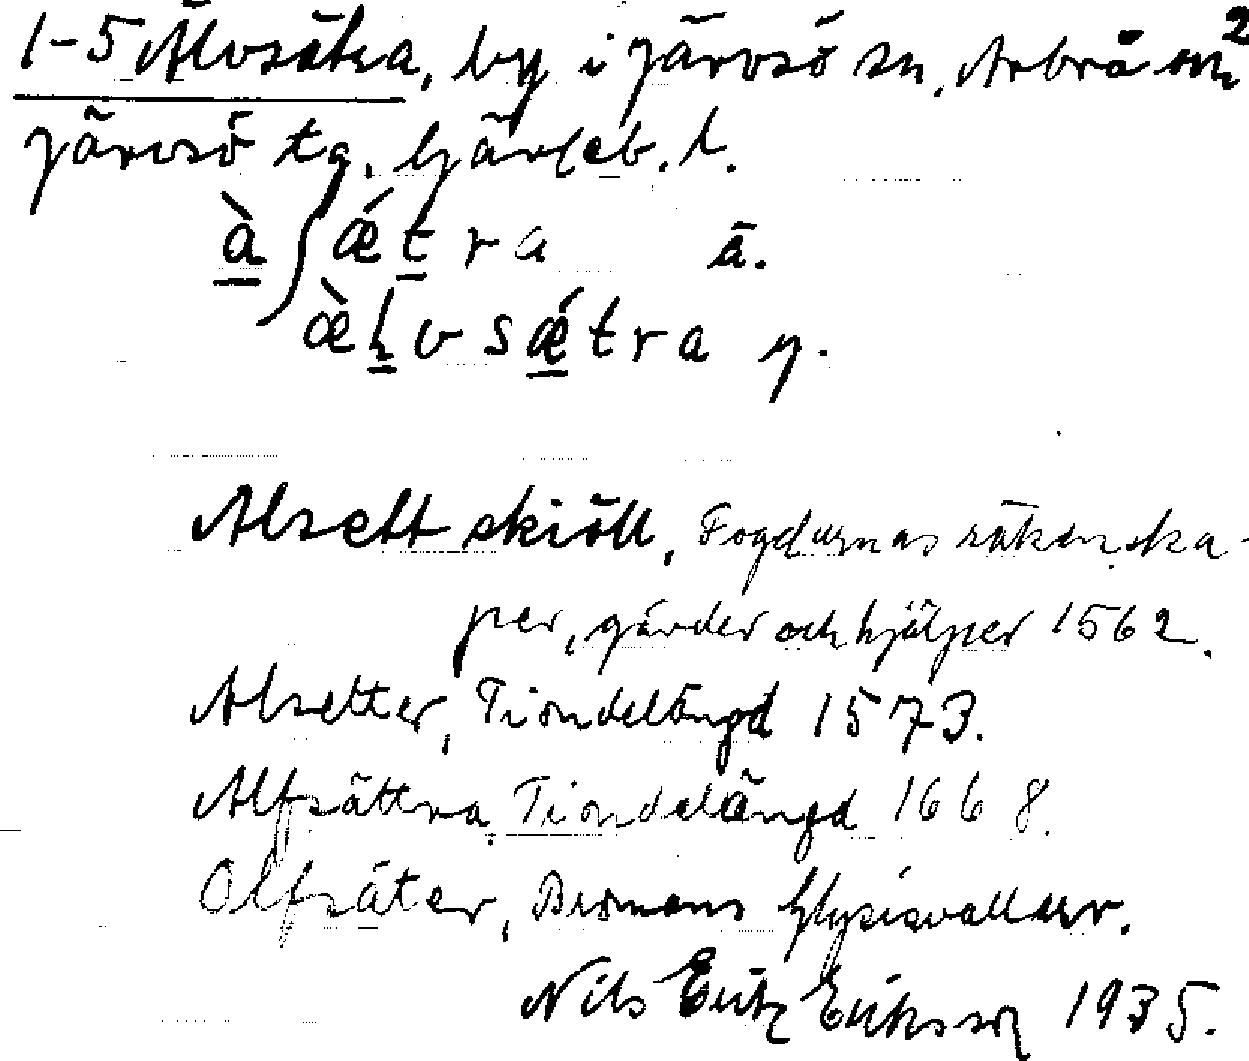 1-5 Älvsätra, by i Järvsö sn, Arbrå och
Järvsö tg, Gävleb. l.
à } ǽtra ä.
æ̀lvsǽtra y.
Alsett skiöll, Fogdurnas räkenska-
per, gärder och hjälper 1562.
Alsetter, Tiondelängd 1573.
Alfsättra, Tiondelängd 1668.
Olfsäter, Bromans Glysisvallur.
Nils Eriksson 1935.